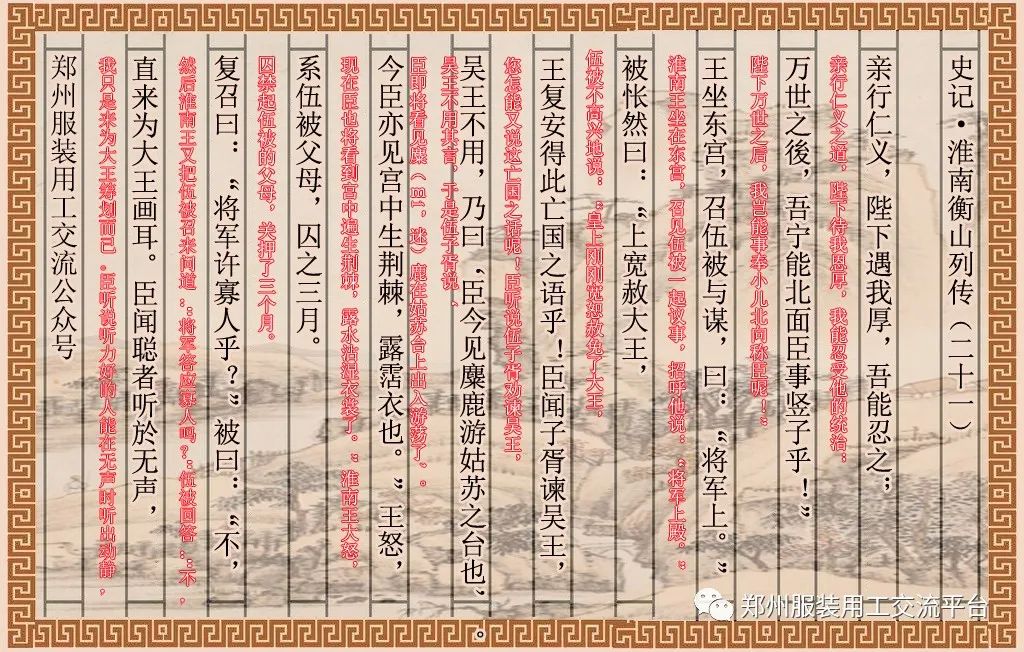 史记·淮南衡山列传（二十一）
亲行仁义，陛下遇我厚，吾能忍之；
亲行仁义之道，陛下待我恩厚，我能忍受他的统治；
万世之後，吾宁能北面臣事竖子乎！”
陛下万世之后，我岂能事奉小儿北向称臣呢！”
王坐东宫，召伍被与谋，曰：“将军上。”
淮南王坐在东宫，召见伍被一起议事，招呼他说：“将军上殿。”
被怅然曰：“上宽赦大王，
伍被不高兴地说：“皇上刚刚宽恕赦免了大王，
王复安得此亡国之语乎！臣闻子胥谏吴王，
您怎能又说这亡国之话呢！臣听说伍子胥劝谏吴王，
吴王不用，乃曰‘臣今见麋鹿游姑苏之台也’。
吴王不用其言，于是伍子胥说‘
臣即将看见麋（mí，迷）鹿在姑苏台上出入游荡了’。
今臣亦见宫中生荆棘，露霑衣也。”王怒，
现在臣也将看到宫中遍生荆棘，露水沾湿衣裳了。”淮南王大怒，
系伍被父母，囚之三月。
囚禁起伍被的父母，关押了三个月。
复召曰：“将军许寡人乎？”被曰：“不，
然后淮南王又把伍被召来问道：“将军答应寡人吗？”伍被回答：“不，
直来为大王画耳。臣闻聪者听於无声，
我只是来为大王筹划而已。臣听说听力好的人能在无声时听出动静，
郑州服装用工交流公众号
郑州服装用工交流平台